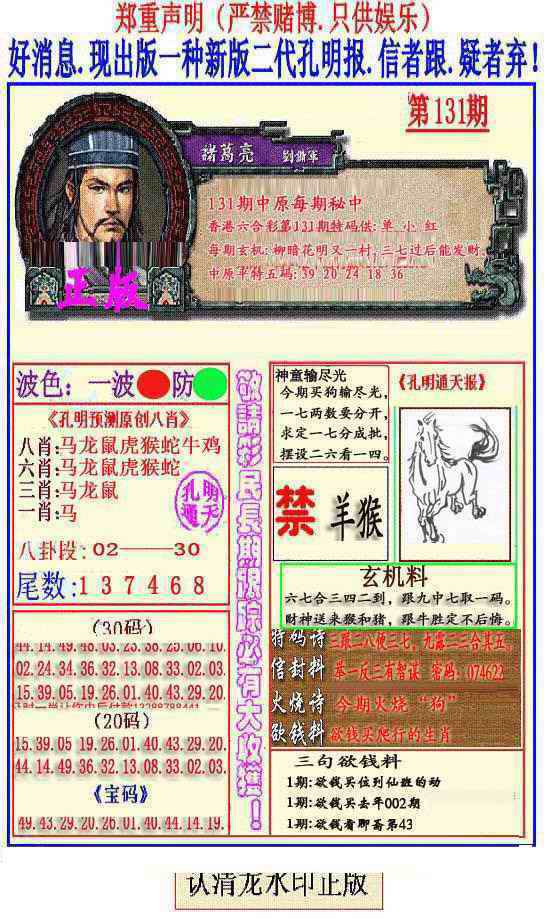 郑重声明（严禁赌博.只供娱乐）
好消息.现出版一种新版二代孔明报.信者跟.疑者弃!
第131期
諸葛亮 劉鋤軍
131期中原每期秘中
香港六合彩第131期特码供: 单 小 红
每期玄机: 柳暗花明又一村, 三七过后能发财
中原平特五码: 39 20 24 18 36
正版
波色: 一波 防
《孔明预测原创八肖》
八肖:马龙鼠虎猴蛇牛鸡
六肖:马龙鼠虎猴蛇
三肖:马龙鼠
一肖:马
孔明
通天
八卦段: 02——30
尾数:137468
(30码)
44.14.49.48.03.23.38.25.06.10
02.24.34.36.32.13.08.33.02.03
15.39.05.19.26.01.40.43.29.20
(20码)
15.39.05 19.26.01.40.43.29.20.
44.14.49.36.32.13.08.33.02.03.
《宝码》
49.43.29.20.26.01.40.44.14.19.
敬請彩民長期跟踪必有大收獲!
神童输尽光
今期买狗输尽光,
一七两数要分开,
求定一七分成批,
摆设二六看一四。
《孔明通天报》
禁 羊猴
玄机料
六七合三四二到, 跟九中七取一码。
财神送来猴和猪, 跟牛胜定不后悔。
特码诗 三跟二八便三七, 九露二二合其五。
信封料 举一反三有智谋 密码: 074622
火烧诗 今期火烧“狗”
欲钱料 欲钱买爬行的生肖
三句欲钱料
1期:欲钱买位到仙班的动
1期:欲钱买去年002期
1期:欲钱看聊斋第43
认清龙水印正版